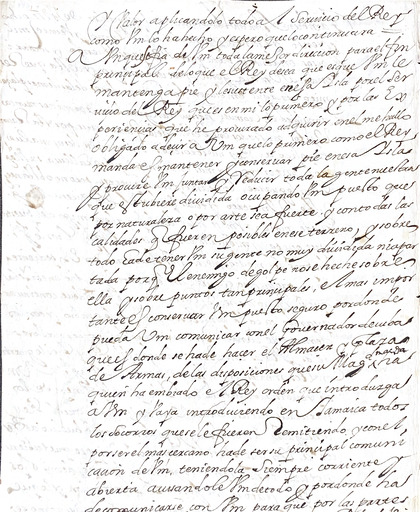 Y Valor aplicandolo todo a el servicio del Rey
como Vm lo ha hecho y espero que lo continuara
A Vm questria de Vm toda la mejor direcion para el fin
principal de lo que el Rey desea que es que Vm le
mantenga pie y consistente en esa Isla por el ser
vicio del Rey que es en mi lo primero y por las Ex
periencias que he procurado adquirir en el me hallo
obligado a decir a Vm que lo primero como el Rey
manda es mantener y conservar pie en esa Isla
y procure Vm juntar y reducir toda la gente nuestra
que estubiere dividida ocupando Vm puesto que
por naturaleza o por arte sea fuerte y con todas las
calidades q fueren posible en ese terreno, y sobre
todo ha de tener Vm su gente no muy dividida ni apar
tada porq el enemigo de golpe no se heche sobre
ella y sobre puntos tan principales, el mas impor
tante es conservar Vm puesto seguro por donde
pueda Vm comunicar con el Governador de cuba
que es donde se ha de hacer el Almacen y Plaza
de Armas, de las disposiciones que su Magd
quien ha embiado el Rey orden que introduzga
a Vm y vaya introduciendo en Jamaica todos
los socorros que se le fueren Remitiendo y con el
por ser el mas cercano ha de ser su principal comuni
cacion de Vm, teniendola siempre corriente y
abierta avisandole Vm de todo y por donde ha
de comunicarse con Vm para que por las partes